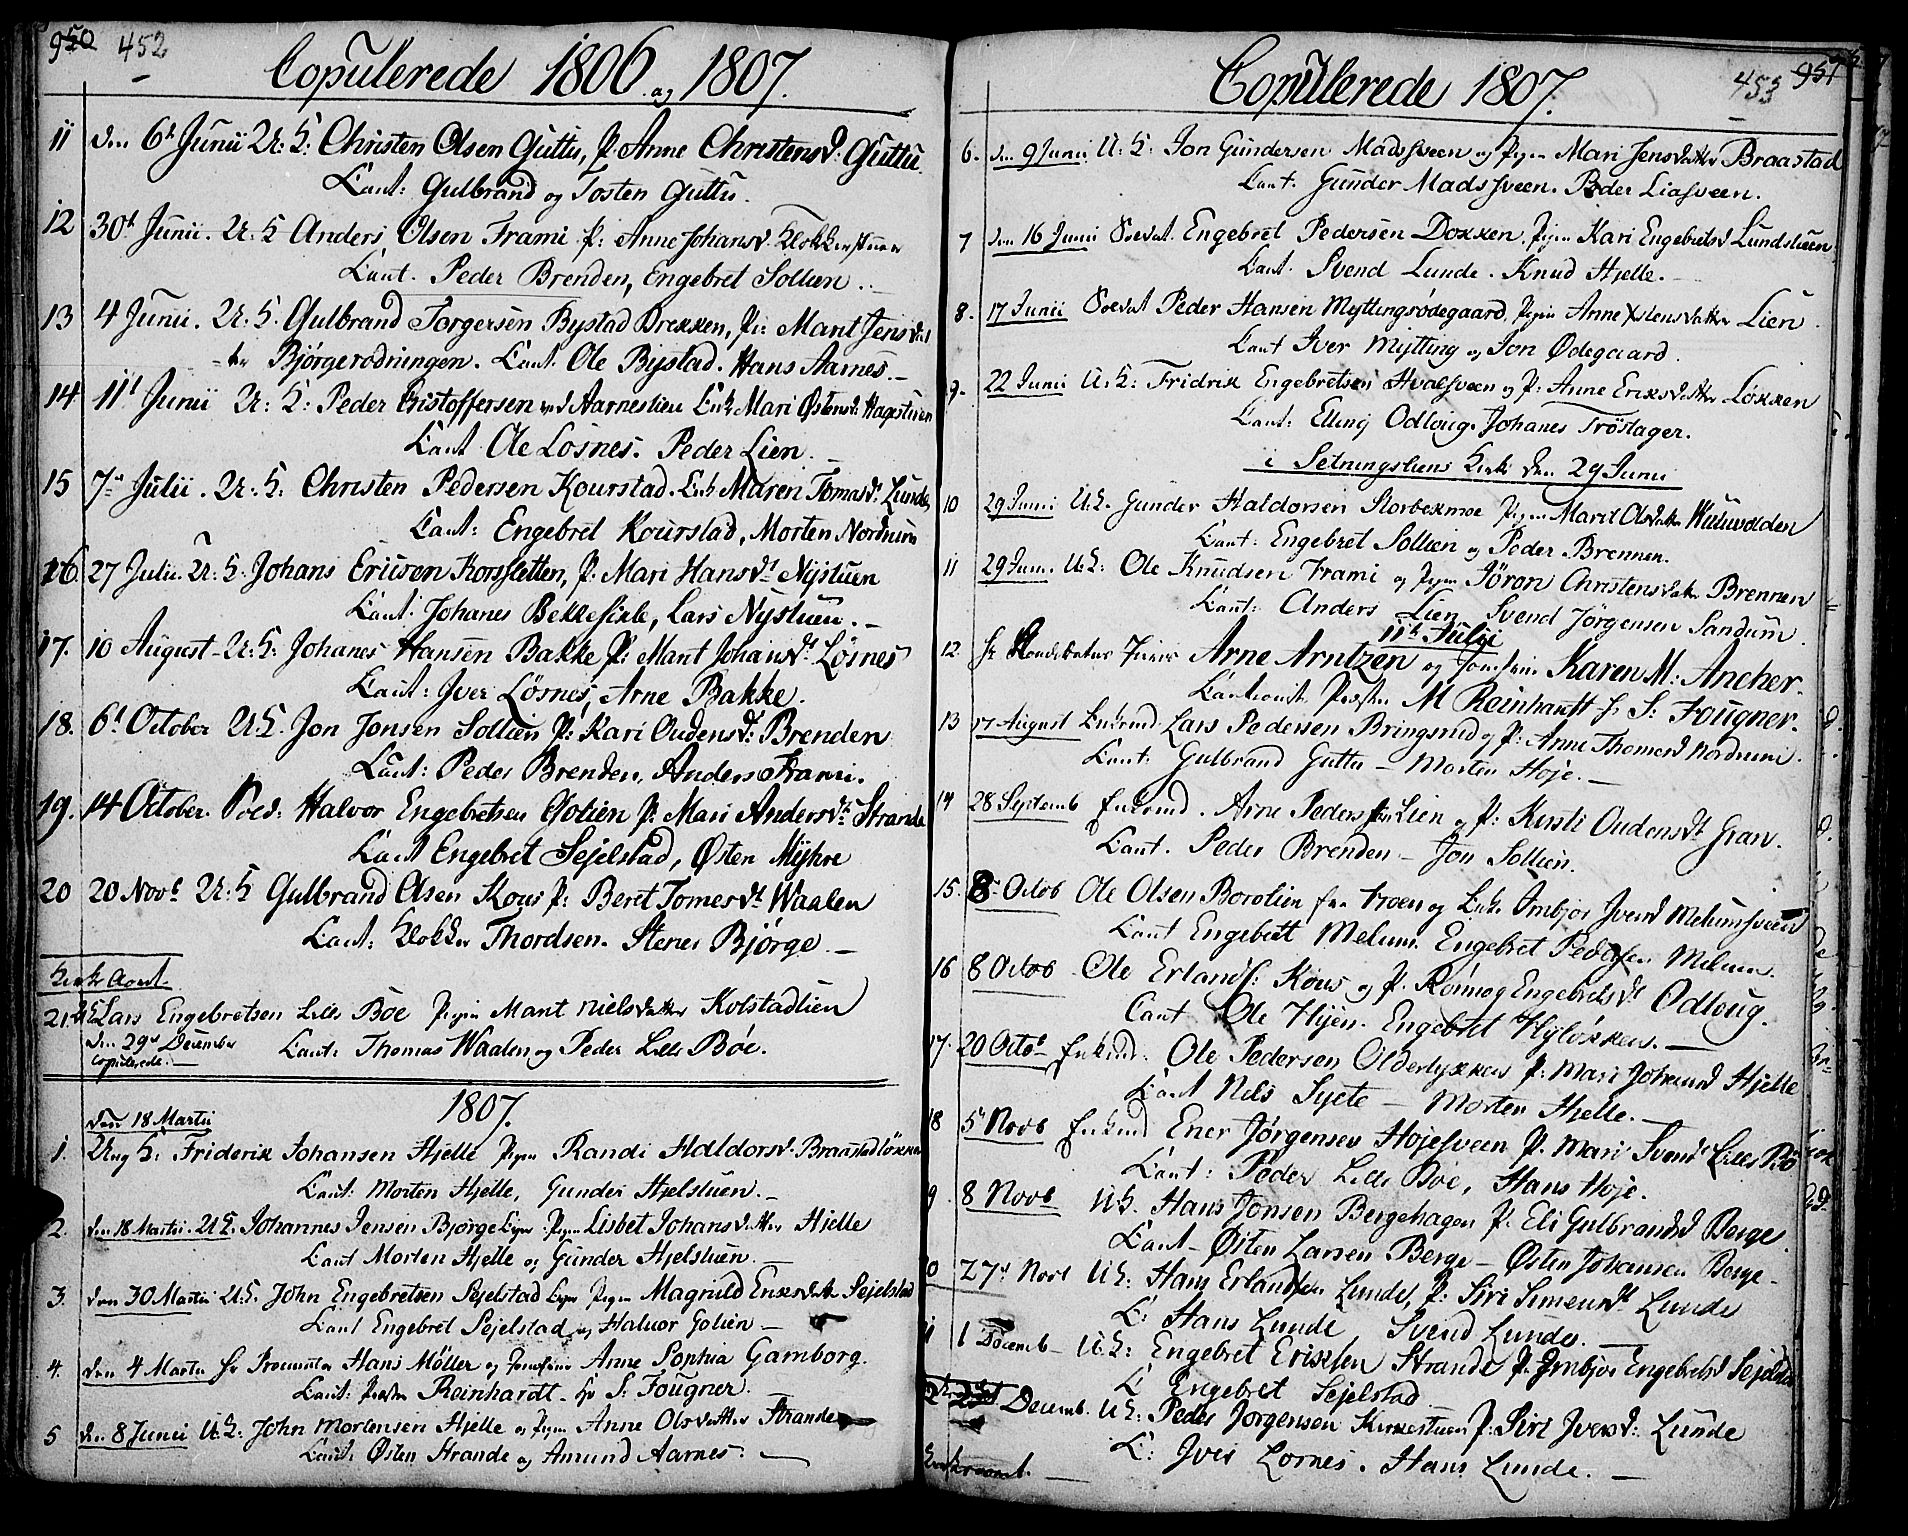 950 452
Copulerede 1806 og 1807.
11 den 6t Junii U: K: Christen Olsen Guttu, P: Anne Christensd: Guttu
Caut: Gulbrand og Tosten Guttu.
12 30t Junii. U: K Anders Olsen Frami P: Anne Johansd. Klokkerstuen
Caut. Peder Brenden, Engebret Sollien.
13 4 Junii. U: K. Gulbrand Torgersen Bystad Brekken, Pi: Marit Jensdat
ter Bjørgerødningen. Caut. Ole Bystad. Hans Aarnes.
14 11t Junii U: K: Peder Cristoffersen Aarneslien Enk Mari Østensd: Hagestuen
Caut Ole Losnes. Peder Lien.
15 7de Julii. U: K: Christen Pedersen Kourstad. Enk Maren Tomasd: Lunde
Caut: Engebret Kourstad, Morten Nordrum
16 27 Julii. U: K. Johans Ericsen Korsfletten, P. Mari Hansdt Nystuen
Caut: Johanes Bekkesirle, Lars Nystuen.
17. 10 August U: K: Johanes Hansen Bakke P: Marit Johansdt Løsnes
Caut: Iver Løsnes, Arne Bakke.
18. 6t October U: K. Jon Jonsen Sollien P: Kari Oudensd: Brenden
Caut: Peder Brenden, Anders Frami.
19. 14 October. Sold: Halvor Engebretsen Golien P: Mari Andersdt Strande
Caut Engebret Sejelstad, Østen Myhre
20 20 Novb U: K Gulbrand Olsen Kous P: Beret Tomesdt Waalen
Caut: Klokker Thordsen. Stener Bjørge.
21. UK Lars Engebretsen Lille Bøe Pigen Marit Nielsdatter Kolstadlien
den 29de December Caut: Thomas Waalen og Peder Lille Bøe.
Copulerede.
1807.
den 18 Martii
1. Ung K: Friderik Johansen Hjelle Pigen Randi Haldorsd. Braastadløkken
Caut: Morten Hjelle, Gunder Hjelstuen.
2. den 18 Martii. UK. Johannes Jensen Bjørge Pigen Lisbet Johansdatter Hjelle
Caut Morten Hjelle og Gunder Hjelstuen.
3. den 30 Martii UK. John Engebretsen Sejelstad Pigen Magnild Ericsdatter Sejelstad
Caut Engebret Sejelstad og Halvor Golien
4. den 4 Martii Hr Procurator Hans Möller og Jomfrue Anne Sophia Gamborg.
Caut: Præsten Reinhardt. Hr S: Fougner.
5 den 8 Junii UK. John Mortensen Hjelle og Pigen Anne Olsdatter Strande
Caut. Østen Strande og Amund Aarnes.
453 951
Copulerede 1807.
6. den 9 Junii U: K: Jon Gundersen Madssveen og Pigen Mari Jensdatter Braastad
Caut. Gunder Madssveen. Peder Liasveen.
7 den 16 Junii Soldat. Engebret Pedersen Dokken, Pigen Kari Engebretsd Lundstuen
Caut. Svend Lunde. Knud Hjelle.
8. 17 Junii Soldat Peder Hansen Myttingsødegaard, Pigen Anne Xstensdatter Lien
Caut Iver Mytting og Jon Ødegaard.
9. 22 Junii U: K: Fridrik Engebretsen Hvalsveen og P: Anne Ericsdatter Løkken
Caut: Elling Odloug. Johanes Trøstager.
i Setningsliens Kirke den 29 Junii
10 29 Junii UK. Gunder Haldorsen Storbekmoe Pigen Marit Olsdatter
Caut: Engebret Sollien og Peder Brennen.
11 29 Jun. UK: Ole Knudsen Frami og Pigen Jøron Christensdatter Brennen
Caut: Anders Lien Svend Jørgensen Sandum.
11te Julii
12. Hr Arne Arntzen og Jomfrue Karen M: Ancher.
Præsten M Reinhardt Hr S: Fougner.
13 17 August Enkemd. Lars Pedersen Bringsrud og P: Anne Thomesd Nordrum
Caut: Gulbrand Guttu — Morten Høje.
14 28 Septemb Enkemd. Arne Pedersen Lien og P: Kirsti Oudensdt Gran.
Caut. Peder Brenden — Jon Sollien.
15. 8 Octob Ole Olsen Borolien fra Froen og Enke Imbjør Iversd Melumsveen
Caut Engebret Melum. Engebret Pedersen Melum.
16 8 Octob Ole Erlands: Kous og P. Rønnog Engebretsdt Odloug.
Caut Ole Hyen. Engebret Hyløkken.
17. 20 Octob Enkmd. Ole Pedersen Olderløkken P: Mari Johansd Hjelle
Caut Niels Sycte — Morten Hjelle.
18 5t Novb Enkmd Ener Jørgensen Højesveen P. Mari Svendsd Lille Bø
Caut: Peder Lille Bøe, Hans Høje.
9. 8 Novb UK. Hans Jonsen Bergehagen P. Eli Gulbrandsd Berge.
Caut — Østen Larsen Berge — Østen Johansen Berge
0 27de Novb UK: Hans Erlandsen Lunde, P: Siri Simensdt Lunde
C: Hans Lunde, Svend Lunde.
1 Decemb — UK: Engebret Eriksen Strande P. Imbjør Engebretsd Sejelstad
C Engebret Sejelstad
Decemb. UK: Peder Jørgensen Kirkestuen P: Siri Iversd: Lunde
C: Iver Lornes. Hans Lunde.